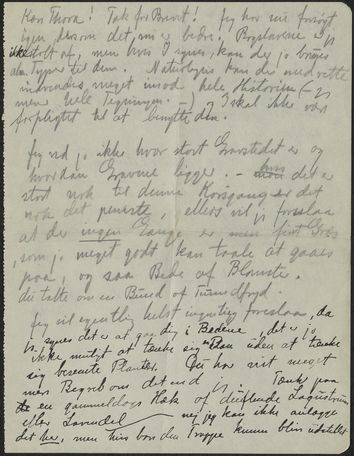 Kære Thora! Tak for Brevet! Jeg har nu forsøgt
igen dersom det nu er bedre. Bogstaverne er jeg
ikke stolt af, men hvis I synes, kan der jo bruges
alm. Typer til dem. Naturligvis kan der nedrettes
indvendes meget imod hele Historien (- jeg
mener hele Tegningen. -) og I skal ikke være
forpligtet til at benytte den.
Jeg ved jo ikke hvor stort Gravstedet er og
hvordan Gravene ligger. - hvis det er
stort nok til denne Korsgang er det
nok det peneste, ellers vil jeg foreslaa
at der ingen Gange er men fint Græs
som jo meget godt kan taale at gaaes
paa, og saa Bede af Blomster.
du talte om en Bund af
Jeg vil egentlig helst ingenting foreslaa, da
jeg synes det er at gaa dig i Bedene, det er jo
ikke muligt at tænke sig en Plan uden at tænke
sig bestemte Planter. Du har vist meget
mere Begreb om det end jeg Tænk paa
en gammeldags Hæk af duftende Ligustrum
eller Lavendel nej jeg kan ikke anlægge
det her, men hvis bare den Trappe kunde blive udstillet